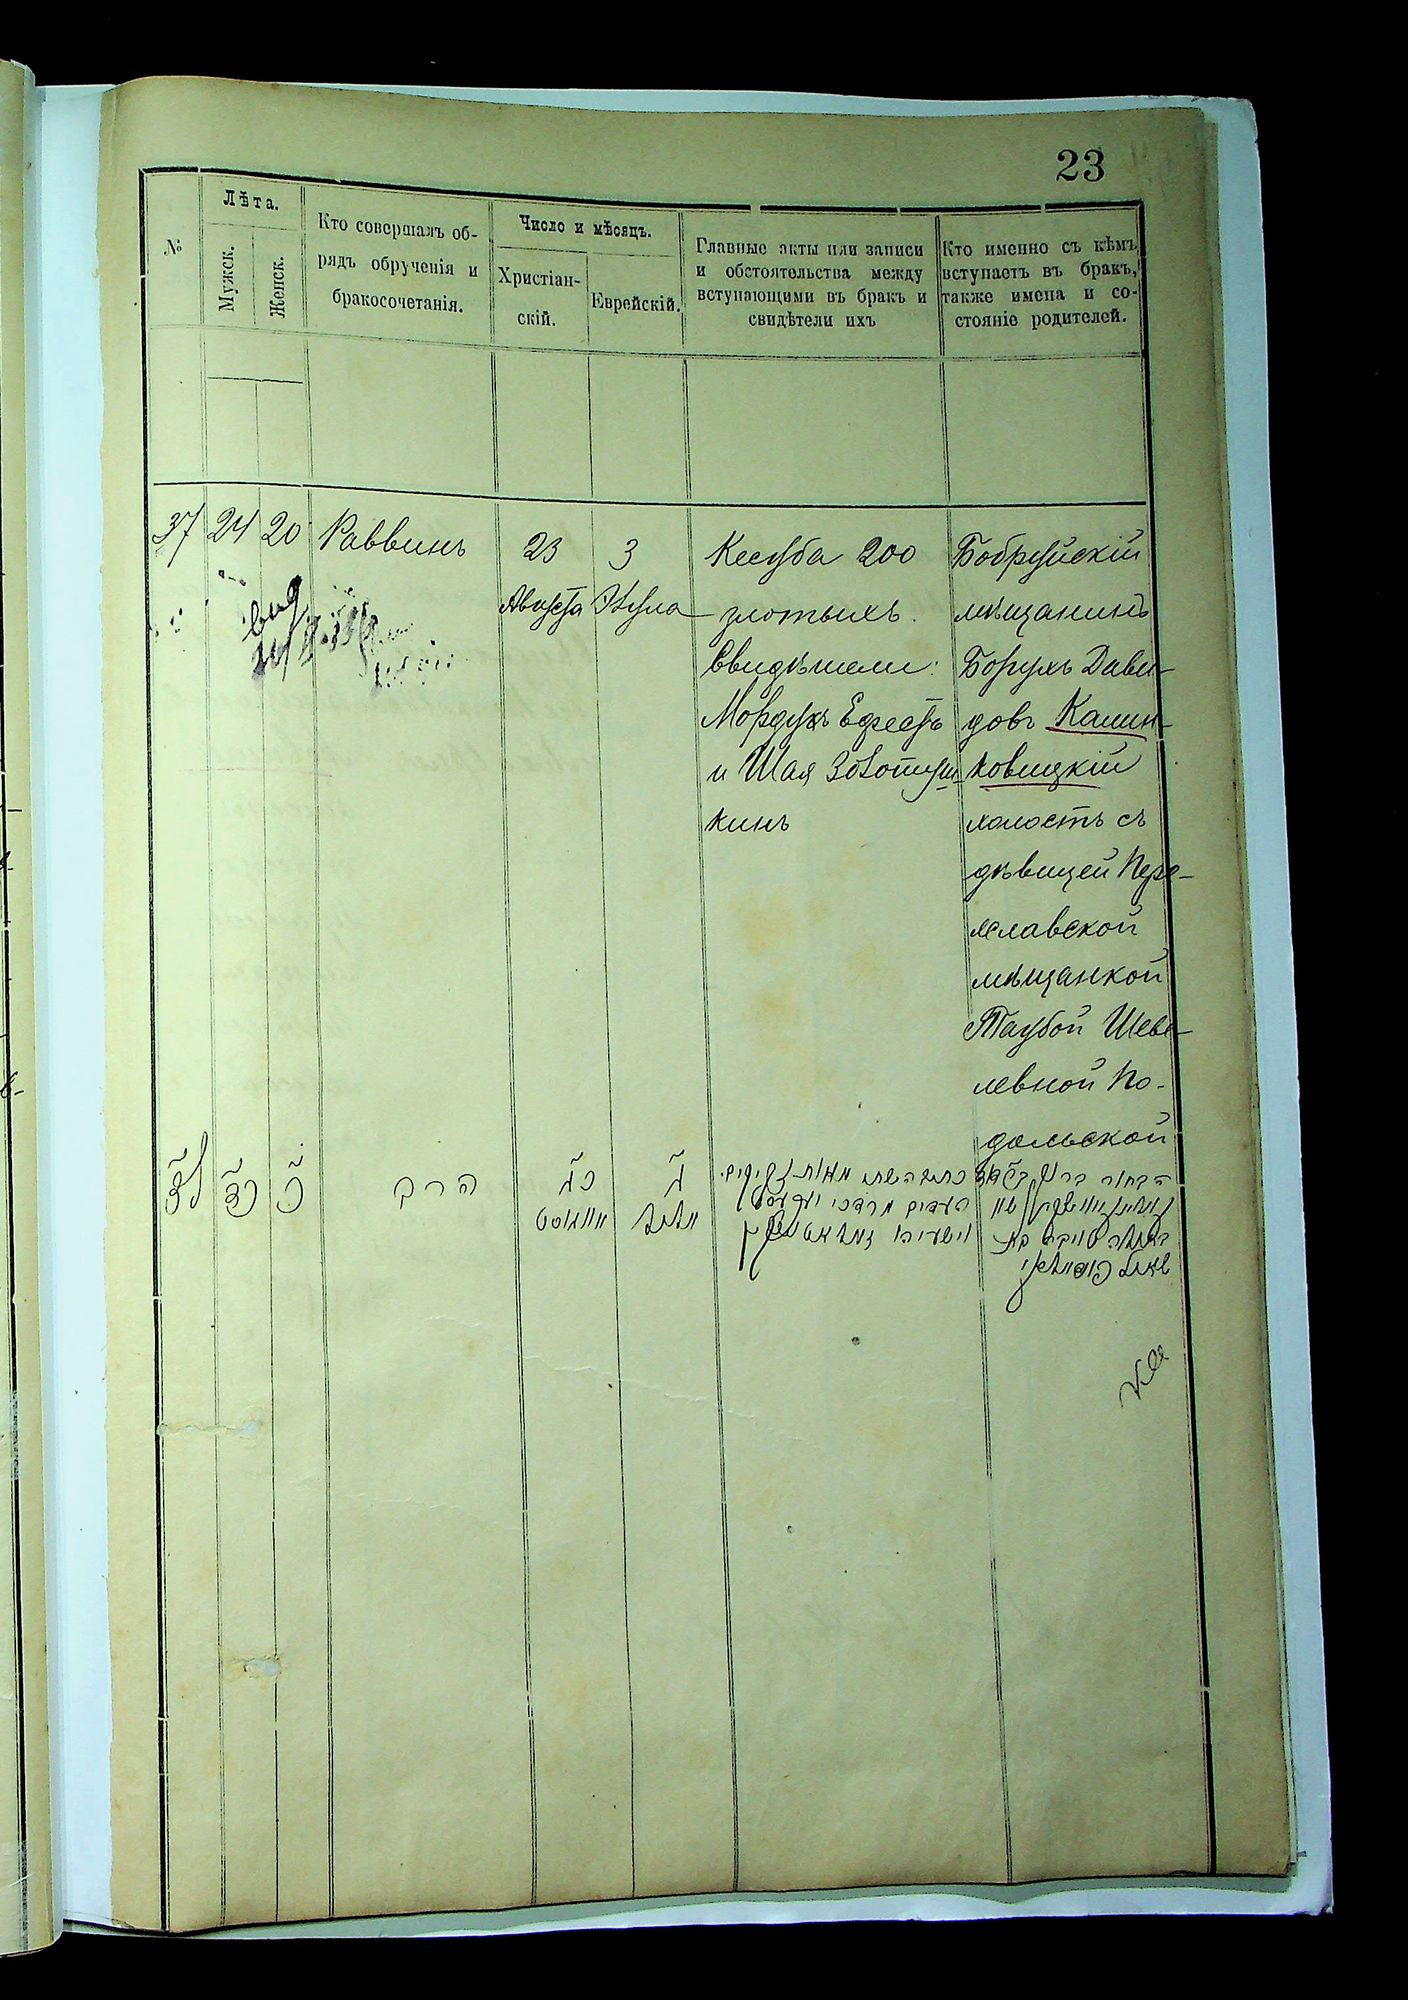 23
№
Лѣта.
Мужск.
Женск.
Кто совершалъ об-
рядъ обрученія и
бракосочетанія.
Число и мѣсяцъ.
Христіан-
скій.
Еврейскій.
Главные акты или записи
и обстоятельства между
вступающими въ бракъ и
свидѣтели ихъ
Кто именно съ кѣмъ
вступаетъ въ бракъ,
также имена и со-
стояніе родителей.
37
24
20
Раввинъ
23
Августа
3
Элула
Кесуба 200
злотыхъ.
Свидѣтели:
Мордухъ Ефестъ
и Шая Золотуш-
кинъ
Бобруйскій
мѣщанинъ
Борухъ Дави-
довъ Калин-
ковицкій
холостъ съ
дѣвицей Пере-
яславской
мѣщанкой
Таубой Шеве-
левной По-
дольской
вид
לז
כד
כ
הרב
כג
אוגוסט
ג
אלול
כתובה שתי מאות זהובים
העדים מרדכי
וישעיהו
הבחור ברוך
עם
הבתולה טויבע בת